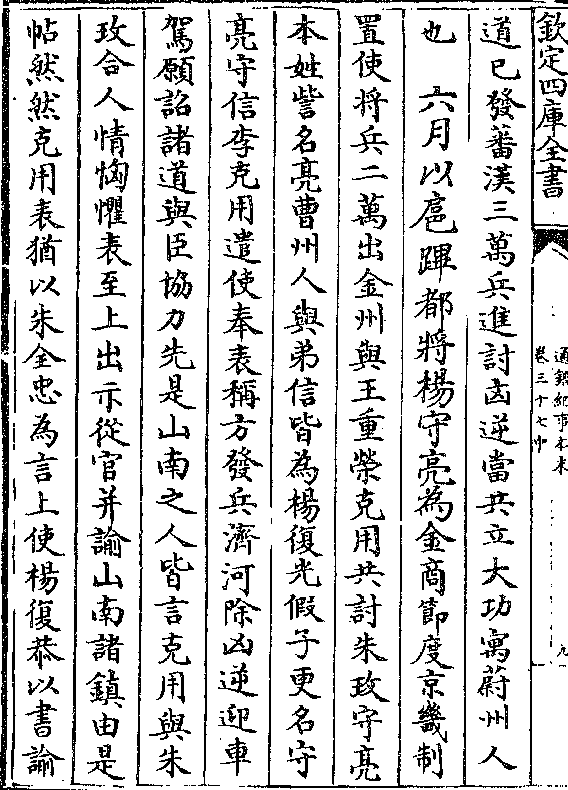 欽定四庫全書
通鑑紀事本末
卷三十七中
九
道已發蕃漢三萬兵進討凶逆當共立大功寓蔚州人
也　六月以扈蹕都將楊守亮為金商節度京畿制
置使將兵二萬出金州與王重榮克用共討朱玫守亮
本姓訾名亮曹州人與弟信皆為楊復光假子更名守
亮守信李克用遣使奉表稱方發兵濟河除凶逆迎車
駕願詔諸道與臣協力先是山南之人皆言克用與朱
玫合人情恟懼表至上出示從官并諭山南諸鎮由是
帖然然克用表猶以朱全忠為言上使楊復恭以書諭